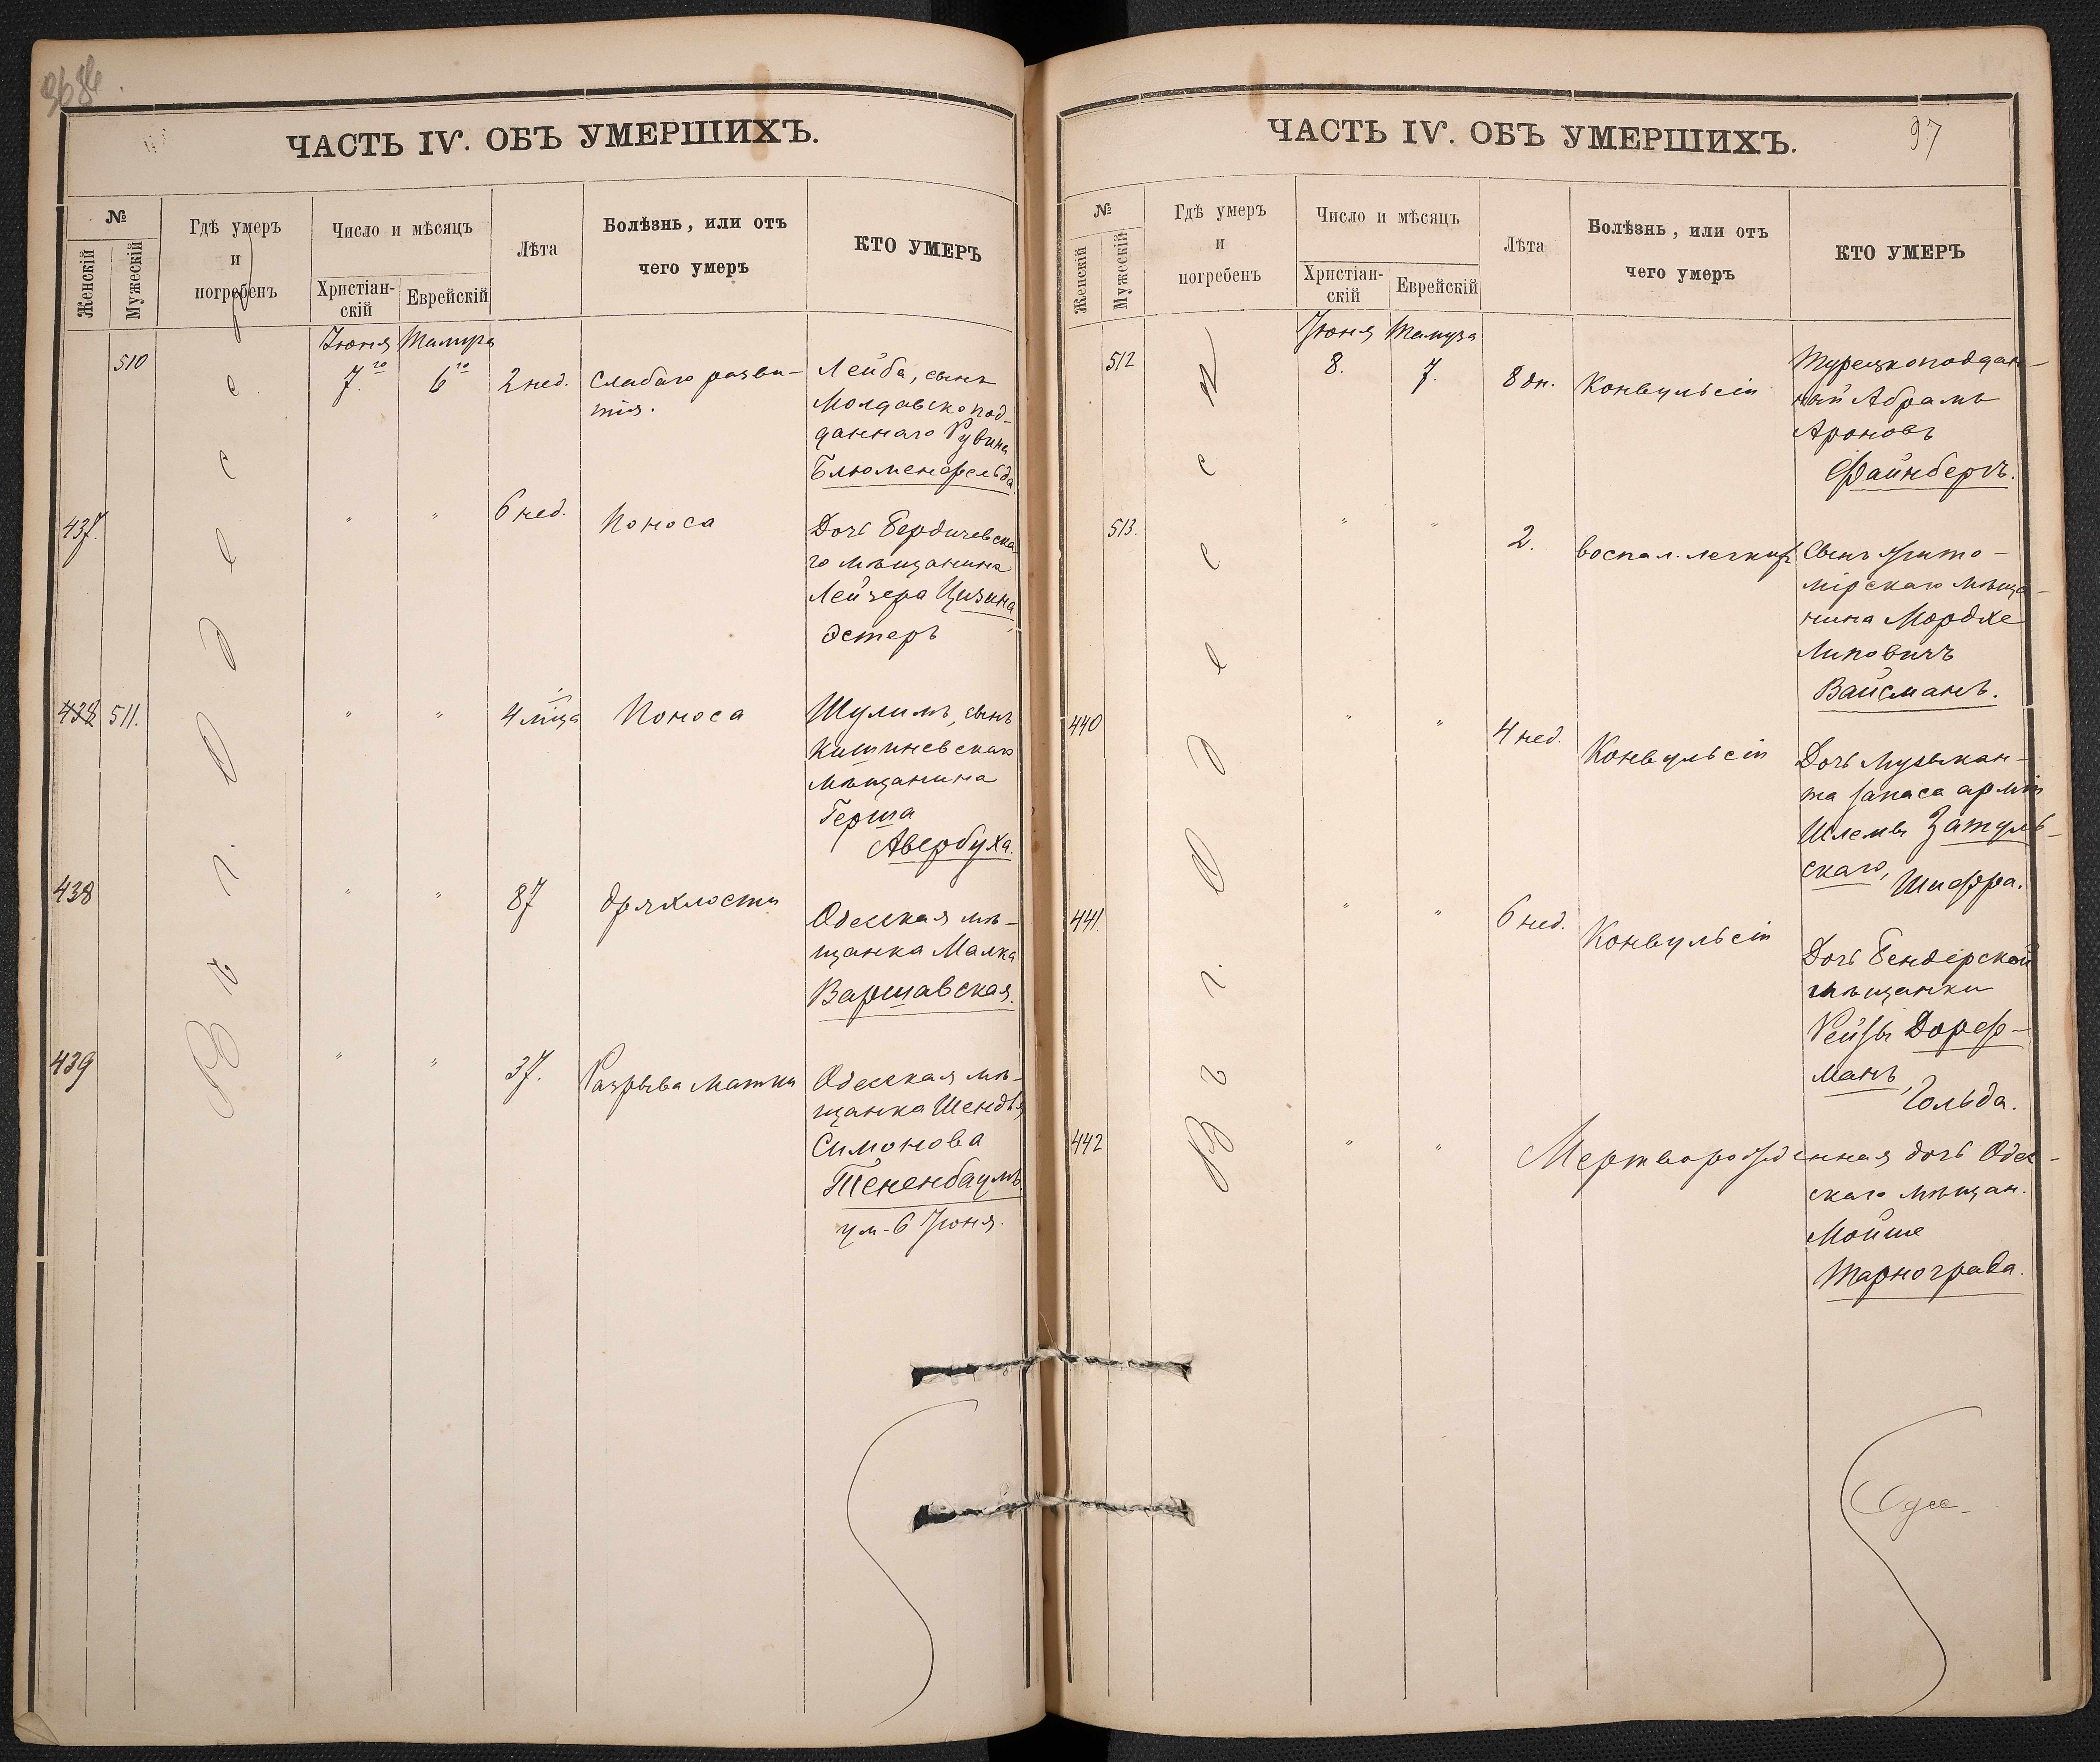 ЧАСТЬ IV. ОБЪ УМЕРШИХЪ.
№
Женскій
Мужескій
Гдѣ умеръ
и
погребенъ
Число и мѣсяцъ
Христіан-
скій
Еврейскій
Лѣта
Болѣзнь, или отъ
чего умеръ
КТО УМЕРЪ
Въ г. Одессѣ
Іюня Тамуза
510 7.го 6го 2 нед. Слабаго разви- Лейба, сынъ
тія. Молдавскопод-
даннаго Рувина
Блюменфельда.
437. " " 6 нед. Поноса Дочь Бердичевска-
го мѣщанина
Лейзера Цизина,
Эстеръ
438 511. " " 4 м-ца Поноса Шулимъ, сынъ
Кишиневскаго
мѣщанина
Герша
Авербуха.
438 " " 87 дряхлости Одесская мѣ-
щанка Малка
Варшавская.
439 " " 37. Разрыва матки Одесская мѣ-
щанка Шендля
Симонова
Тененбаумъ.
ум. 6 Іюня.
ЧАСТЬ IV. ОБЪ УМЕРШИХЪ.
97
№
Женскій
Мужескій
Гдѣ умеръ
и
погребенъ
Число и мѣсяцъ
Христіан-
скій
Еврейскій
Лѣта
Болѣзнь, или отъ
чего умеръ
КТО УМЕРЪ
Въ г. Одессѣ
Іюня Тамуза
512 8. 7. 8 дн. Конвульсіи Турецкоподдан-
ный Абрамъ
Ароновъ
Файнбергъ.
513. " " 2. воспал. легкихъ Сынъ Жито-
мірскаго мѣща-
нина Мордхе
Липовичъ
Вайсманъ.
440 " " 4 нед. Конвульсіи Дочь музыкан-
та запаса арміи
Шлемы Затуль-
скаго, Шифра.
441. " " 6 нед. Конвульсіи Дочь Бендерской
мѣщанки
Рейзы Дорф-
манъ, Гольда.
442 " " Мертворожденная дочь Одес-
скаго мѣщан.
Мойше
Тарнограда.
Одес-